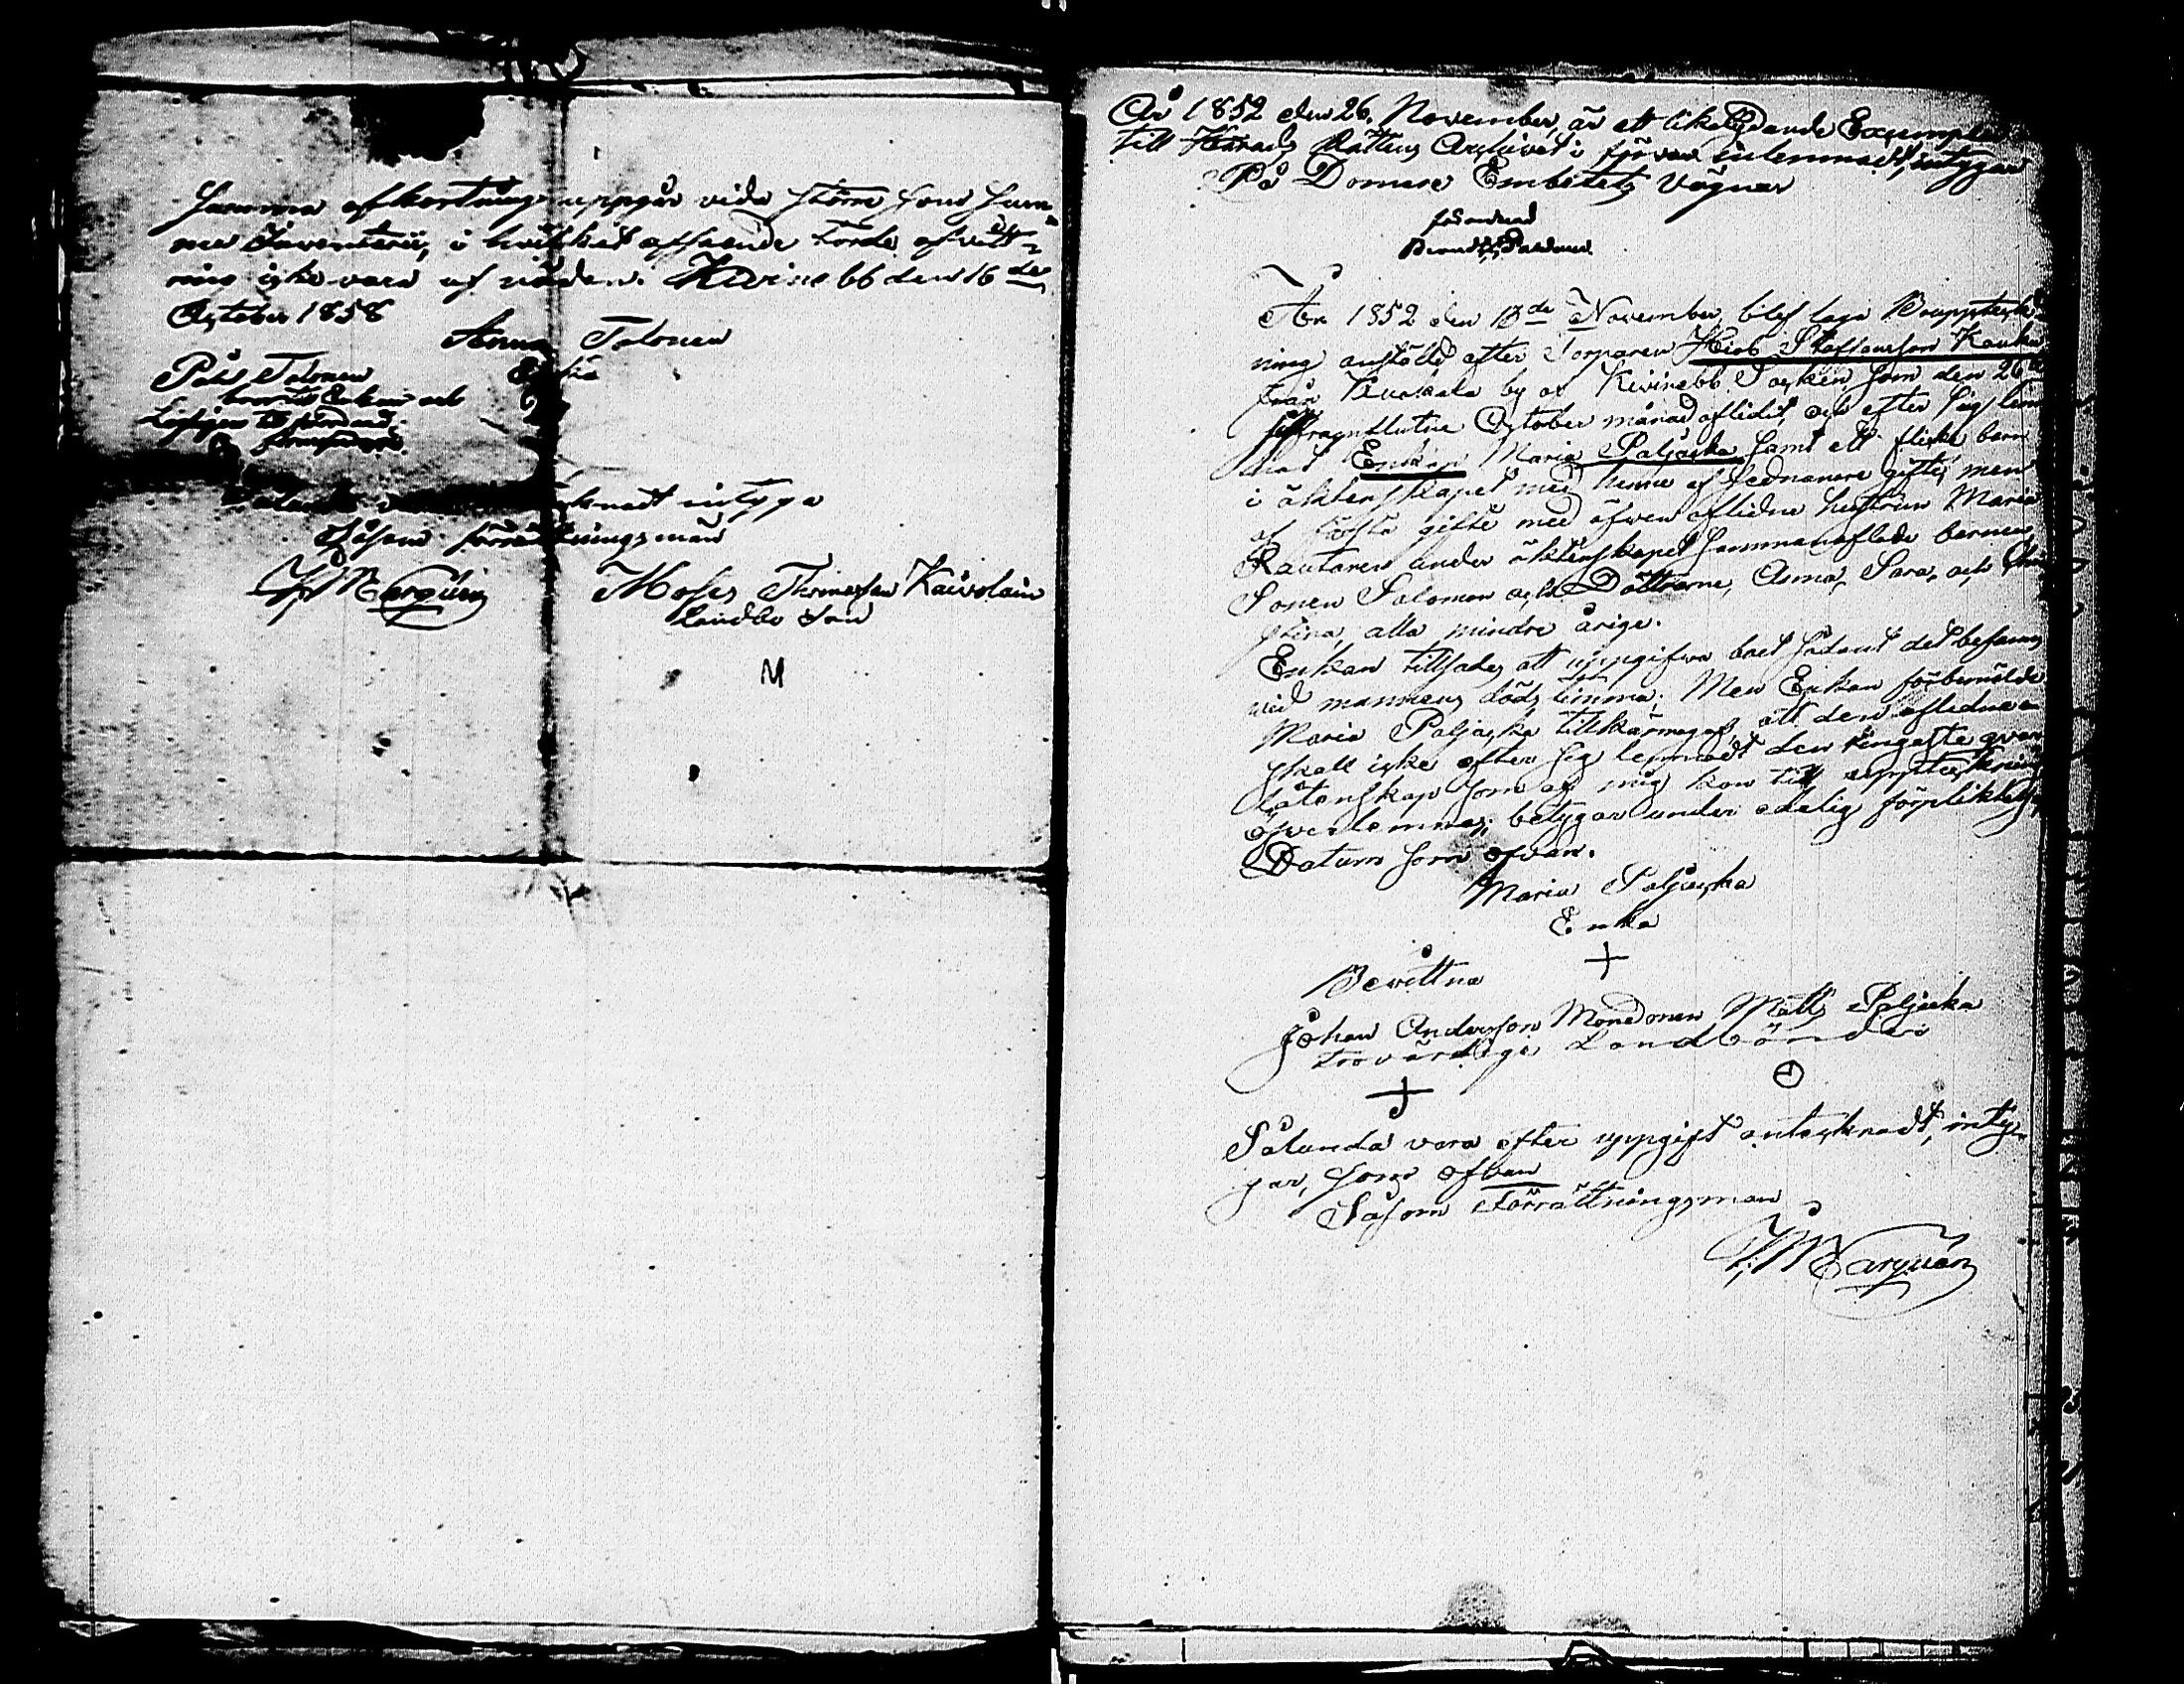 Samma afkortning uppgår vida större än som sum-
me Inventerii, i hvilket afseende torde afvitt-
ring icke vara af nöden. Kivinebb den 16de
October 1858
Anna Tolonen
Enka
Påhl Tolonen
M
Sålunda antecknadt intyga
Såsom förrättningsman
Moses Thomasson Kaivolain
Landbo Son
M
År 1852 den 26. November, är ett likalydande Exemplar
till Härads Rättens Archivet i förvar inlemnadt, intygar
På Domare Embetets vägnar
År 1852 den 13de November, blef laga Bouppteck-
ning anstäld efter Torparen Hiob Staffansson Kauku
från by af Kivinebb Socken, som den 26
October månad aflidit, och efter sig lem-
nat Enkan Maria Paljacka samt ett flicke barn
i äktenskapet med henne af sednare gifte, men
af första gifte med äfven aflidne hustrun Maria
Rautanen under äktenskapet sammanaflade barnen,
Sonen Salomon och Döttrarne, Anna, Sara, och Chri
stina, alla minderårige.
Enkan tillsades att uppgifva boet sådant det befanns
vid mannens dödstimma; Men Enkan förbemälde
Maria Paljacka tillkännagaf, att den aflidne
skall icke efter sig lemnadt den ringaste qvar
låtenskap som af mig kan till uppteckning
öfverlemnas; betygar under edelig förpliktelse,
Datum som ofvan.
Maria Paljacka
Enka
+
Bevittna
Johan Andersson Mondonen Matts Paljacka
trovärdige Landbönder
+
Sålunda vara efter uppgift antecknadt, inty-
gar, som ofvan
Såsom Förrättningsman